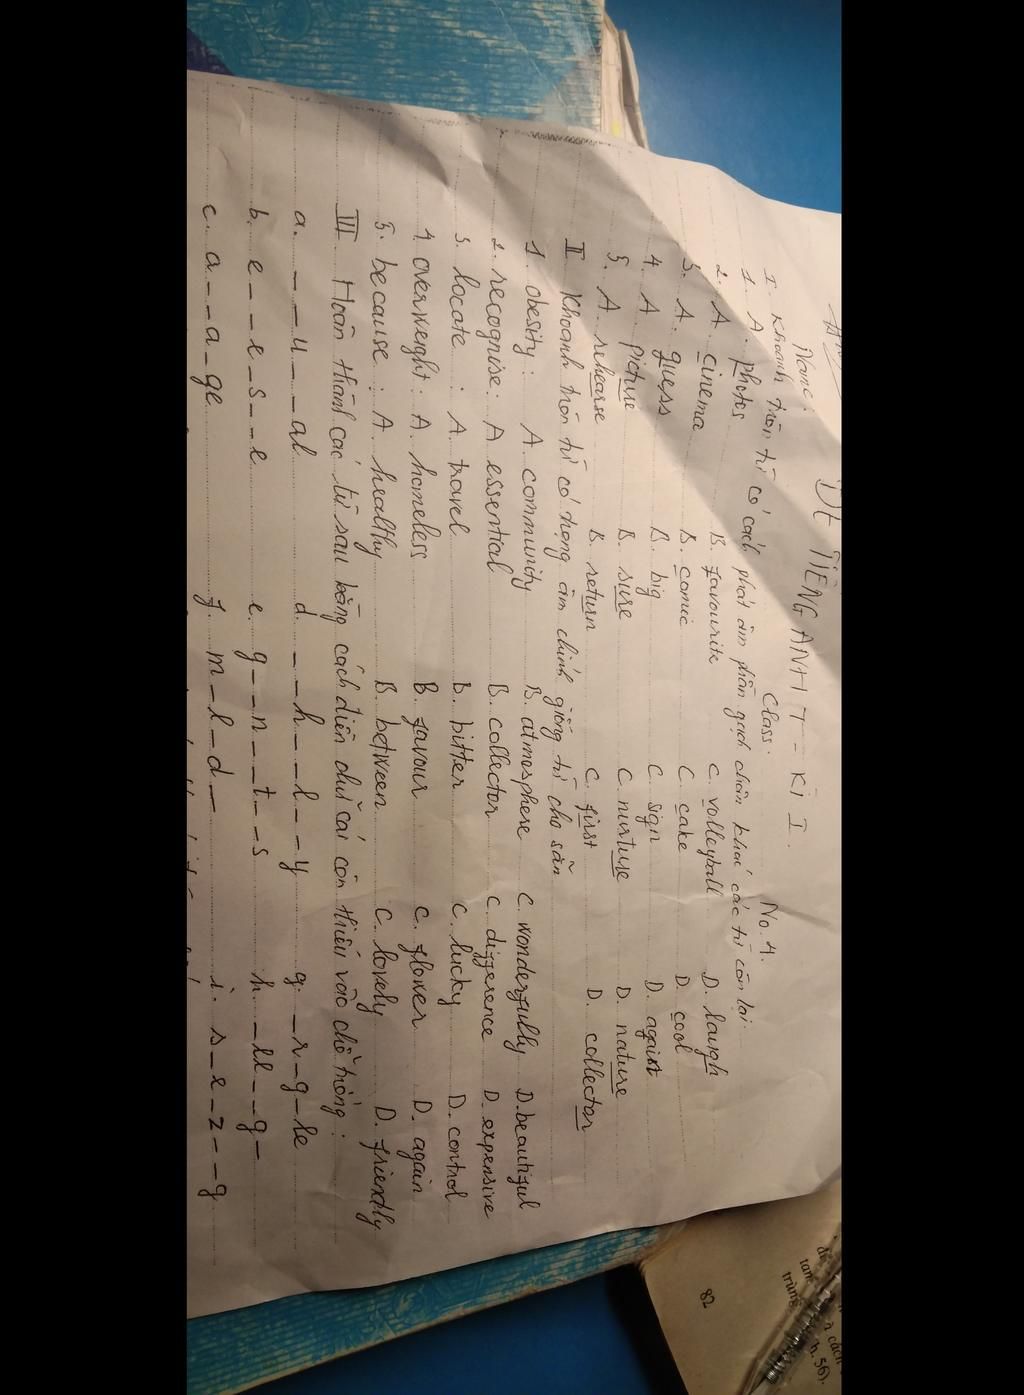 Đt TIẾNG ANH 7 - KÌ I.
Name: Class: No. 4.
I. Khoanh tròn từ có cách phát âm phần gạch chân khác các từ còn lại.
1. A. photos B. favourite C. volleyball D. laugh
2. A. cinema B. comic C. cake D. cool
3. A. guess B. big C. sign D. against
4 A picture B. sure C nurture D. nature
5. A. rehearse B. return C. first D. collector
II Khoanh tròn từ có trọng âm chính giống từ cho sẵn
1. obesity: A. community B. atmosphere C. wonderfully D. beautiful
2. recognise: A essential B. collector C difference D. expensive
3. locate : A. travel B. bitter C. lucky D. control
4 overweight: A. homeless B. favour C. flower D. again
5. because : A. healthy B. between C. lovely D. friendly
III. Hoàn thành các từ sau bằng cách điền chữ cái còn thiếu vào chỗ trống:
a. _ _ _ u _ _ al d. _ _ _ h _ _ l _ _ y g. _ r _ g _ le
b. e _ _ e _ s _ e e. g _ _ n _ _ t _ s h. _ ll _ _ g _
c. a _ _ a _ ge f. m _ l _ d _ i. s _ e _ z _ _ g
82
trùng
h. 56).